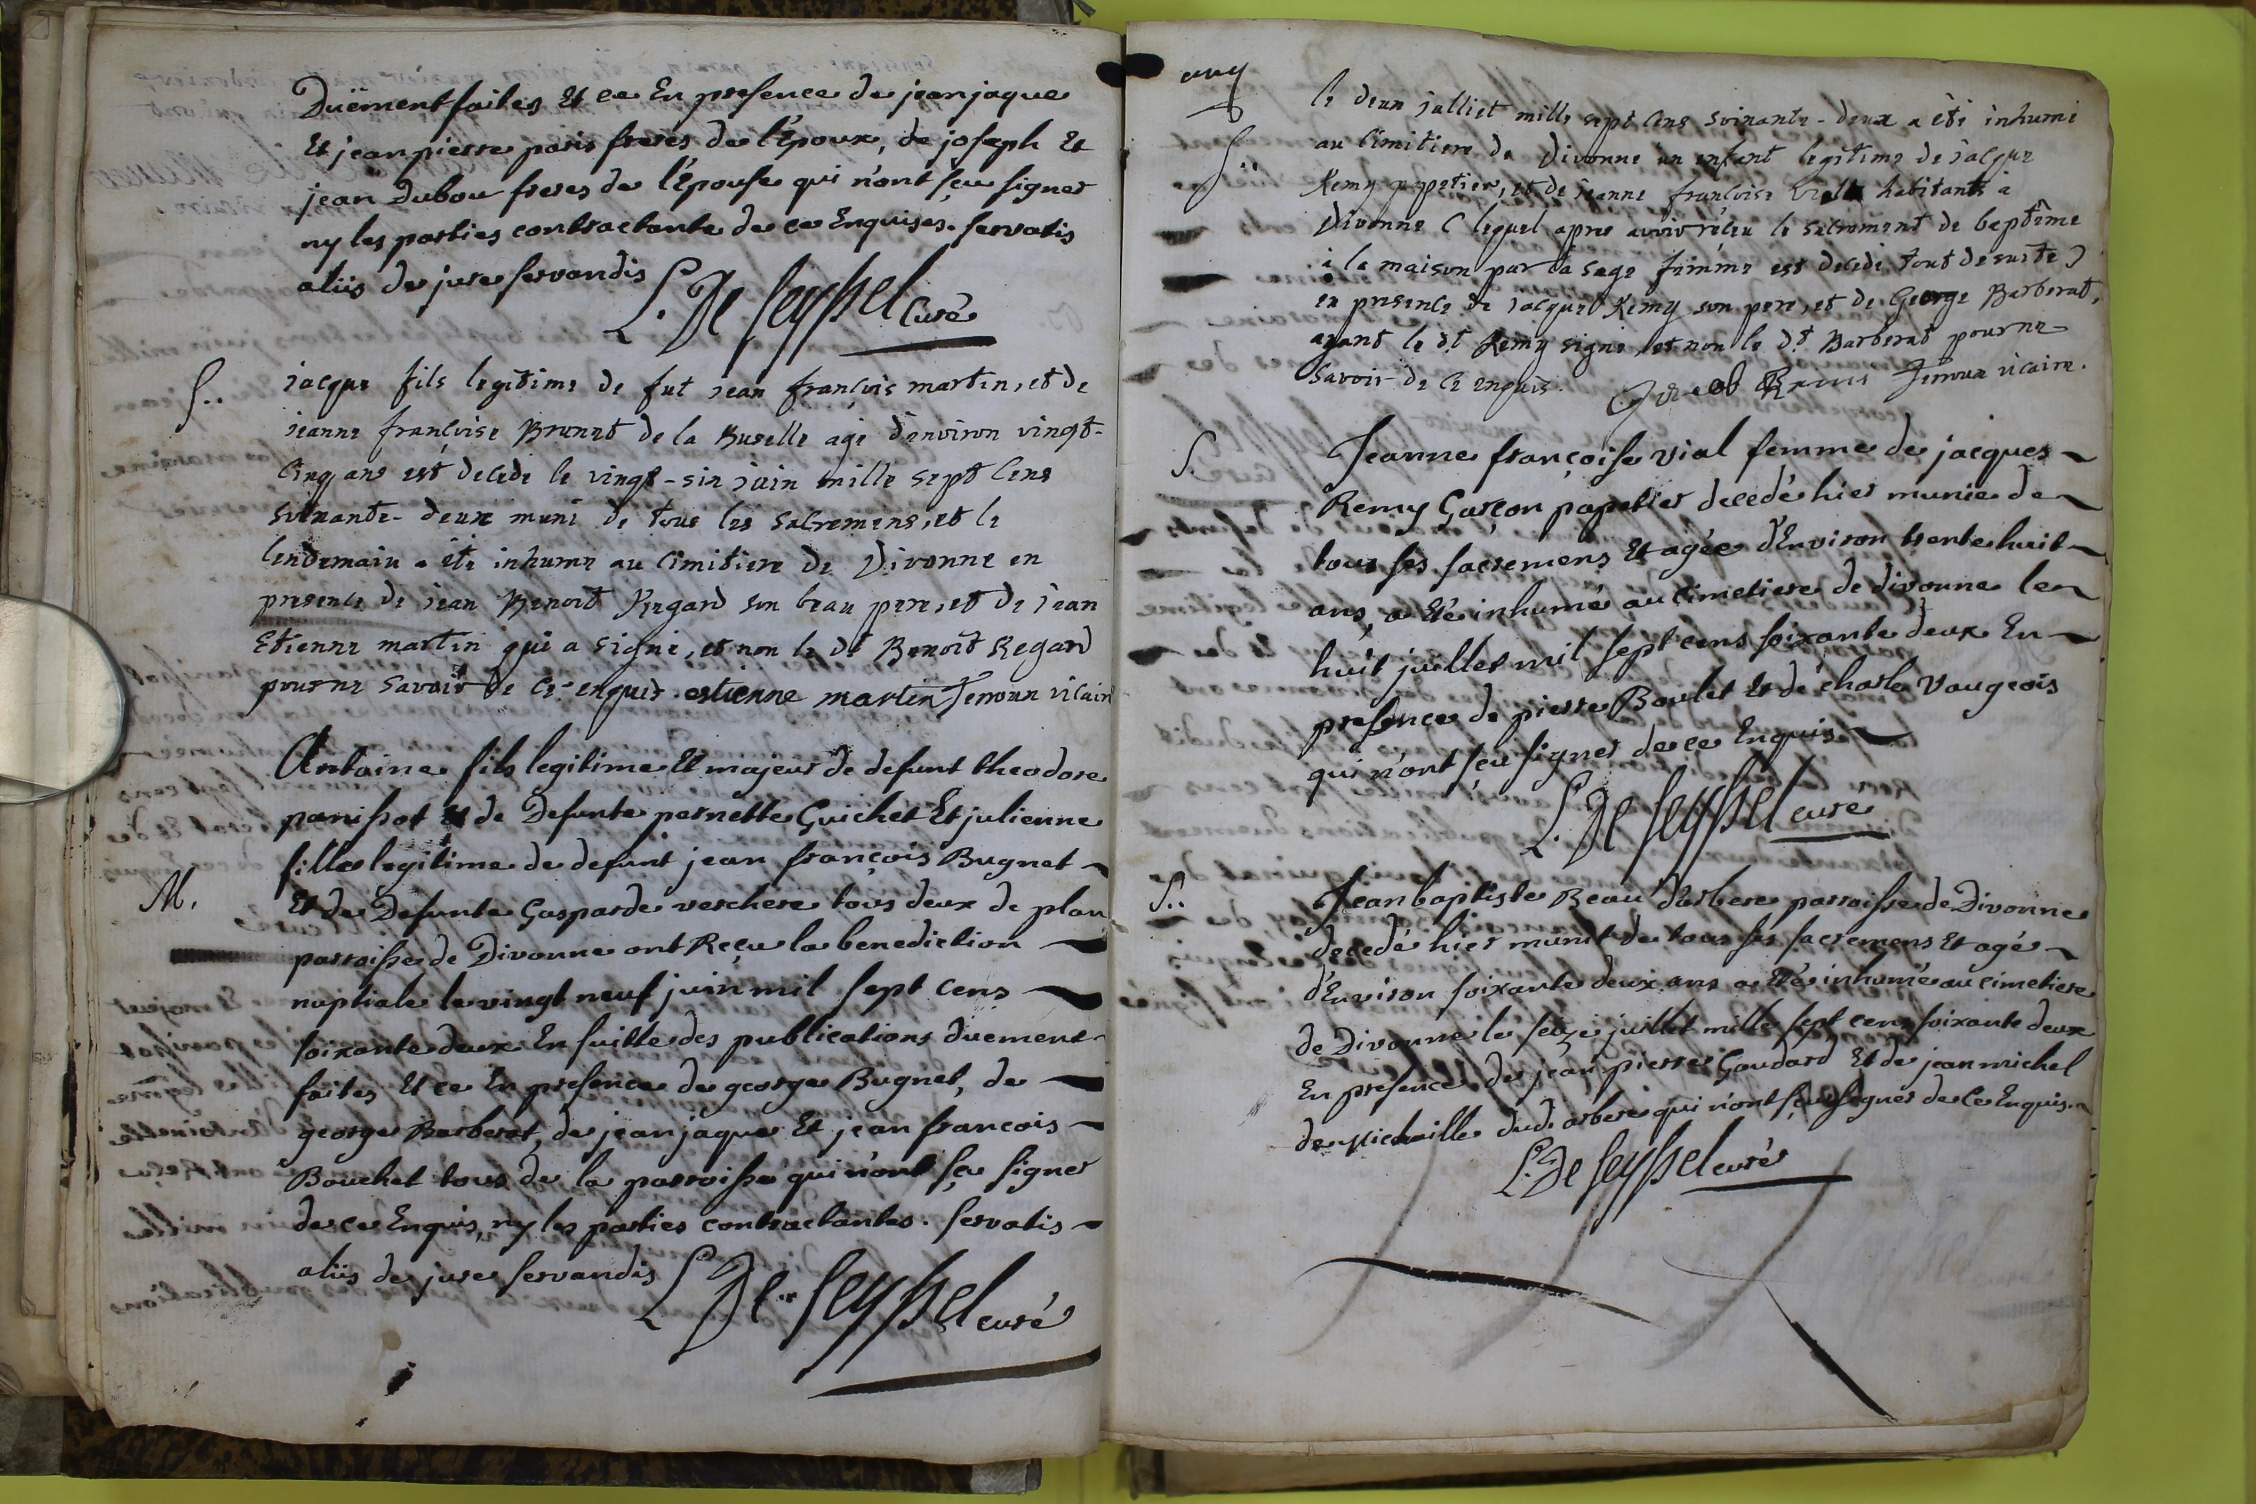 Duëment faites Et ce En presence de jean jaque
Et jean pierre paris freres de l'Epoux, de joseph Et
jean Dubou freres de l'Epouse qui n'ont sçu signer
ny les parties contractante de ce Enquises. servatis
aliis de jure servandis L. De Seyssel Curé
S..
jacque fils legitime de fut jean françois martin, et de
jeanne françoise Brunet de la Buselle agé d'environ vingt-
cinq ans est decedé le vingt-six juin mille sept cens
soixante-deux muni de tous les sacremens, et le
lendemain a été inhumé au cimitiere de Divonne en
presence de jean Benoit Regard son beau pere, et de jean
Etienne martin qui a signé, et non le dt Benoit Regard
pour ne savoir de ce enquis. estienne martin Jemoux vicaire
M.
Antoine fils legitime Et majeur de defunt theodore
panissot Et de Defunte pernette Guichet Et julienne
fille legitime de defunt jean françois Bugnet
Et de Defunte Gasparde verchere tous deux de plan
parroisse de Divonne ont Reçu la benediction
nuptiale le vingt neuf juin mil sept cens
soixante deux En suitte des publications duement
faites Et ce En presence de george Bugnet, de
george Barberat, de jean jaque Et jean francois
Bouchet tous de la parroisse qui n'ont sçu signer
de ce Enquis, ny les parties contractantes. servatis
aliis de jure servandis L. De Seyssel curé
S..
le deux julliet mille sept cens soixante-deux a été inhumé
au cimitiere de Divonne un enfant legitime de jacque
Remy papetier, et de jeanne françoise habitants a
Divonne ( lequel apres avoir réceu le sacrement de baptême
à la maison par la sage femme est decedé tout de suite )
en presence de jacque Remy son pere, et de George Barberat,
ayant le dt. Remy signé, et non le dt. Barberat pour ne
savoir de ce enquis. Jacob Remi Jemoux vicaire.
S.
Jeanne françoise vial femme de jacques
Remy Garçon papetier decedé hier munie de
tous ses sacremens Et agée d'Environ trente huit
ans, a Eté inhumé au cimetiere de divonne le
huit juillet mil sept cens soixante deux En
presence de pierre Boulet Et de charle Vaugeois
qui n'ont sçu signer de ce Enquis
L. De Seyssel curé
S..
Jean baptiste Reau d'arbere parroisse de Divonne
decedé hier munit de tous ses sacremens Et agé
d'Environ soixante deux ans a Eté inhumé au cimetiere
de Divonne le seize juillet mille sept cens soixante deux
En presence de jean pierre Goudard Et de jean michel
de Michaille dud. arbere qui n'ont sçu signer de Ce Enquis.
L. De Seyssel curé